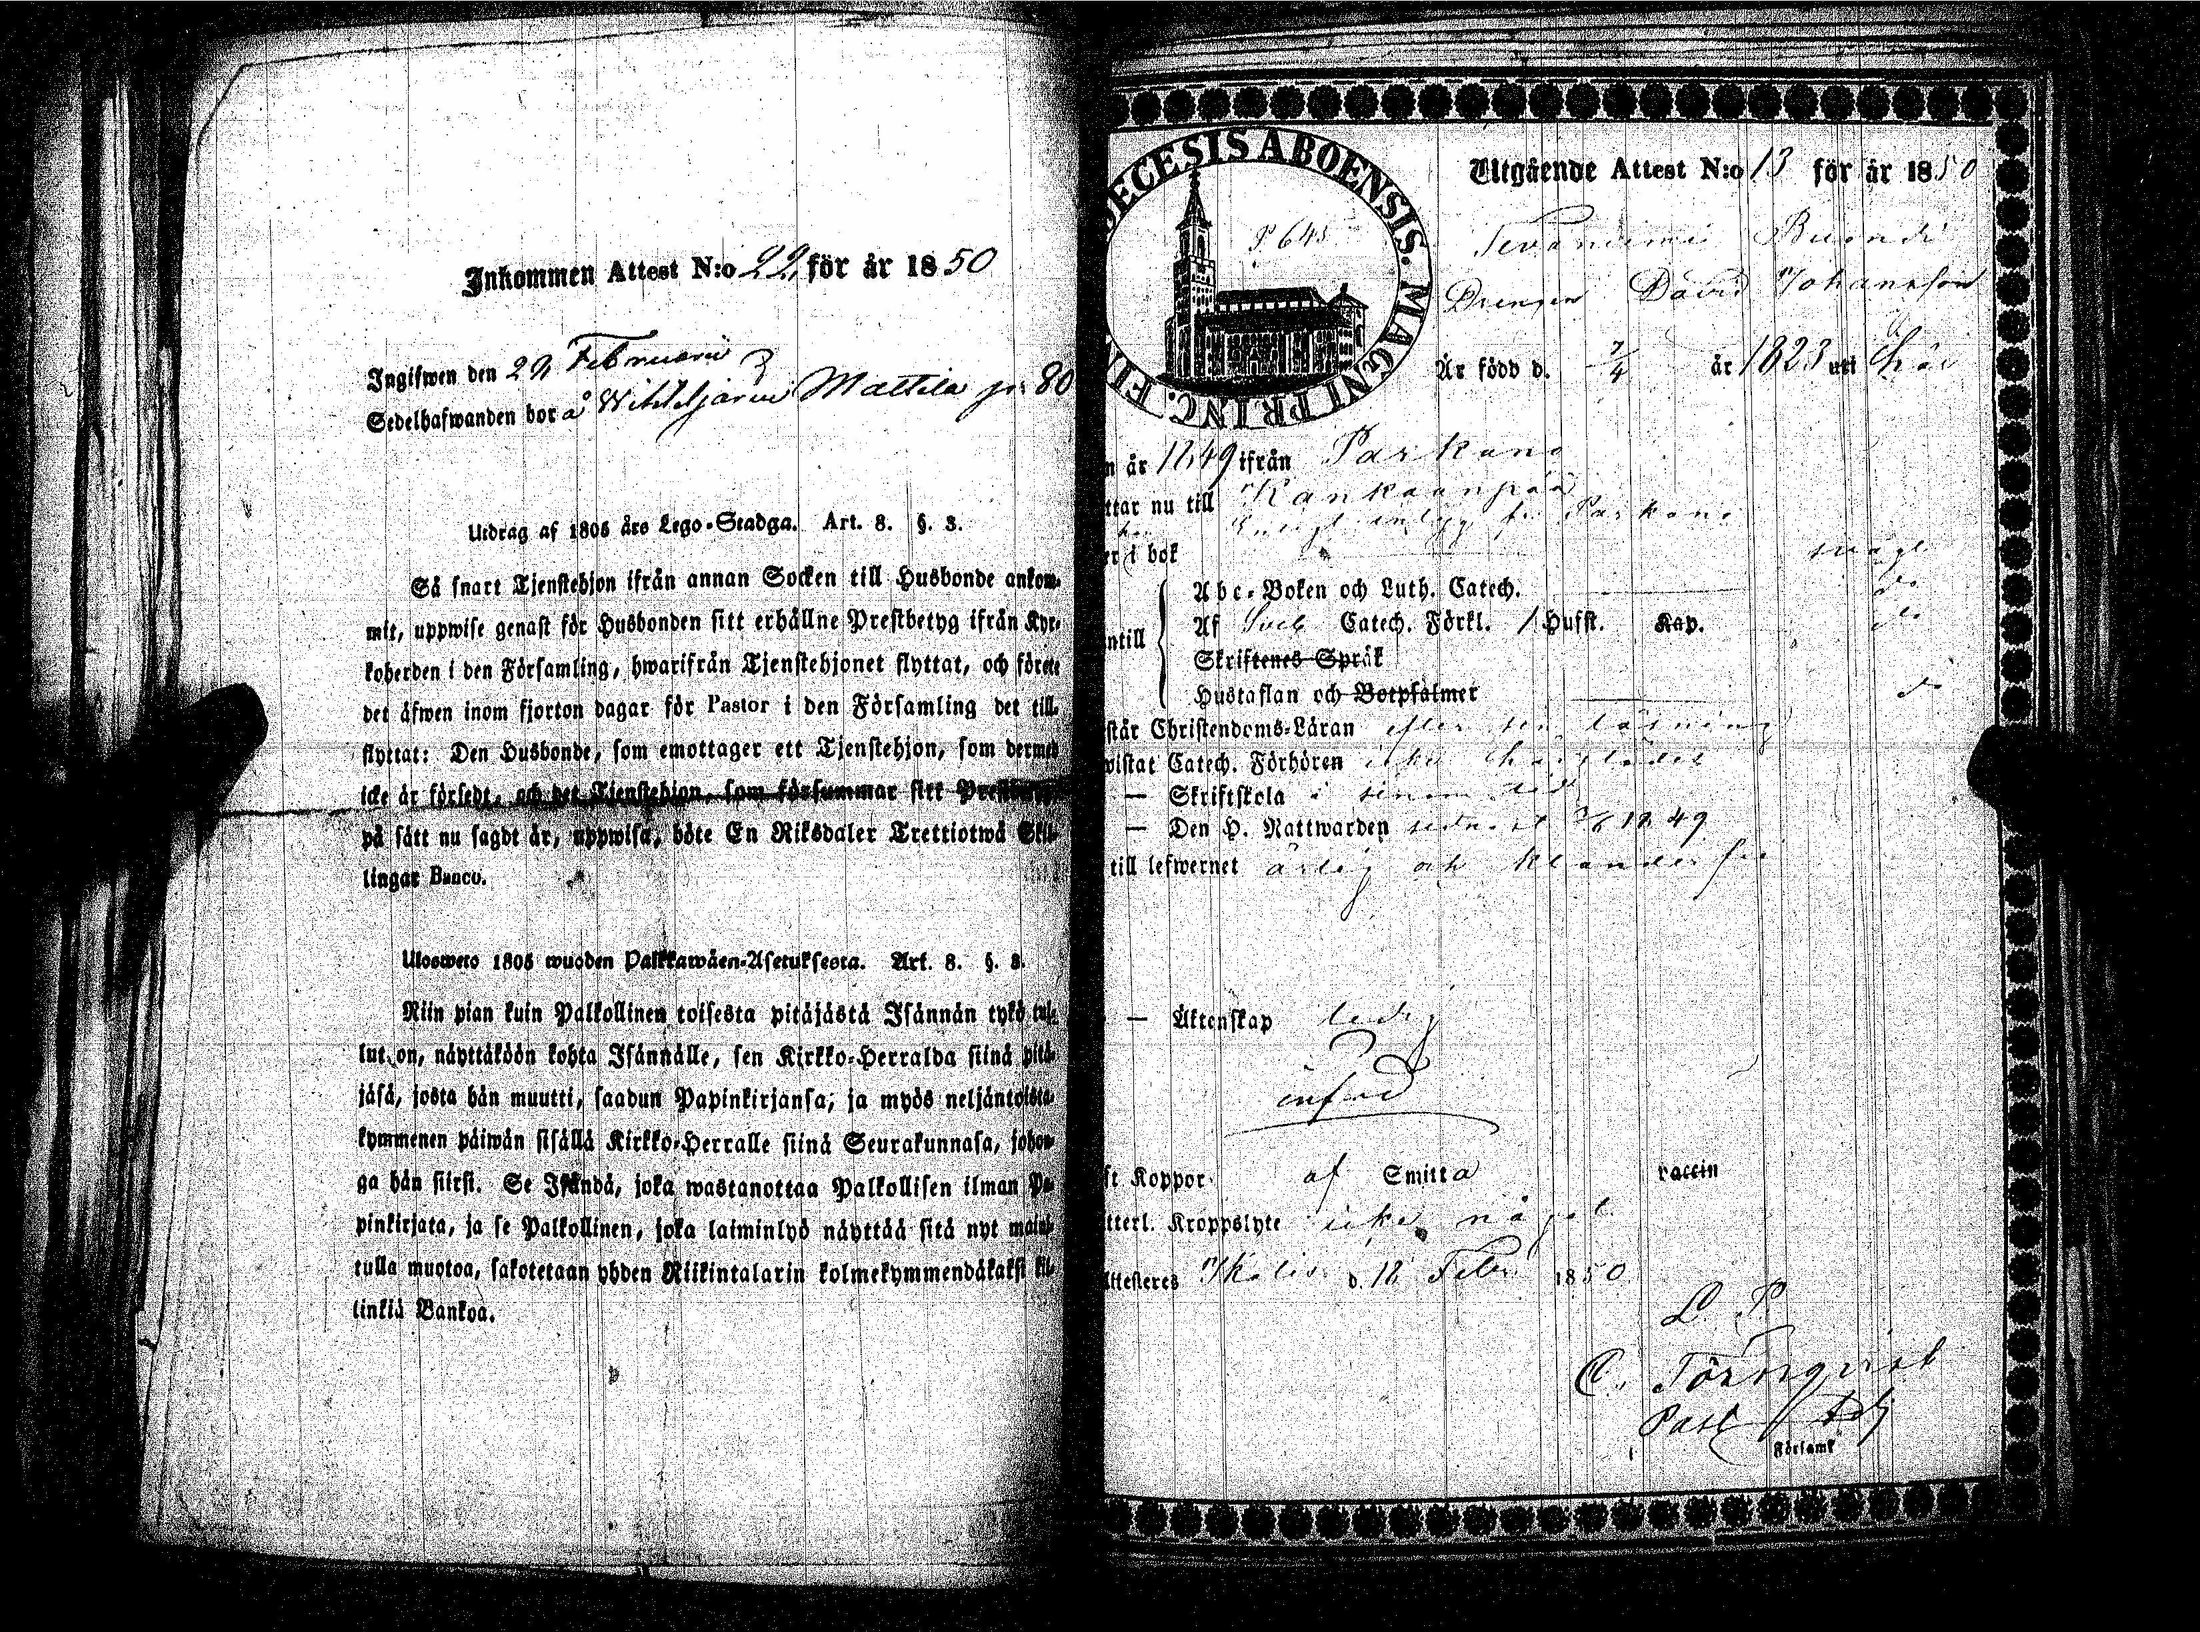 Inkommen Attest N:o 22 för år 1850
Ingifwen den 22 Februarii
Sedelhafwanden bor å Wihteljärvi Mattila p. 80
Utdrag af 1805 års Lego-Stadga. Art. 8. §. 3.
Så snart Tjenstehjon ifrån annan Socken till Husbonde ankom-
mit, uppwise genast för Husbonden sitt erhållne Prestbetyg ifrån Kyr-
koherden i den Församling, hwarifrån Tjenstehjonet flyttat, och förete
det äfwen inom fjorton dagar för Pastor i den Församling det till-
flyttat: Den Husbonde, som emottager ett Tjenstehjon, som dermed
icke är försedt, och det Tjenstehjon, som försummar sitt Prestbetyg
på sätt nu sagdt är, uppwisa, böte En Riksdaler Trettiotwå Skil-
lingar Banco.
Ulosweto 1805 wuoden Palkkawäen-Asetuksesta. Art. 8. §. 3.
Niin pian kuin Palkollinen toisesta pitäjästä Isännän tykö tul-
lut on, näyttäköön kohta Isännälle, sen Kirkko-Herralda siinä pitä-
jäsä, josta hän muutti, saadun Papinkirjansa, ja myös neljäntoista-
kymmenen päiwän sisällä Kirkko-Herralle siinä Seurakunnasa, johon-
ga hän siirst. Se Isändä, joka wastanottaa Palkollisen ilman Pa-
pinkirjata, ja se Palkollinen, joka laiminlyö näyttää sitä nyt maini-
tulla muotoa, sakotetaan yhden Riikintalarin kolmekymmendäkaksi kil-
linkiä Bankoa.
DIECESIS ABOENSIS. MAGNI PRINC. FIN
P 645
Utgående Attest N:o 13 för år 1850
Drengen David Johansson
Är född d. 7/4 år 1823 uti
n år 1849 ifrån Parkano
ttar nu till Kankaanpää
Enligt Parkano
er i bok
Abc-Boken och Luth. Catech. do
ntill Af Sveb Catech. Förkl. / Hufst. Kap. do
Skriftenes Språk
Hustaflan och Botpsalmer do
står Christendoms-Läran efter sin läsning
vistat Catech. Förhören
— Skriftskola i sinom tid
— Den H. Nattwarden sednast 1849
till lefwernet ärlig och klanderfri
— Äktenskap ledig
införd
ft Koppor af Smitta vaccin
tterl. Kroppslyte icke något
Attesteres Ikalis d. 18 Febr 1850
L. P.
C. Törnqvist
Past Adj
Församl